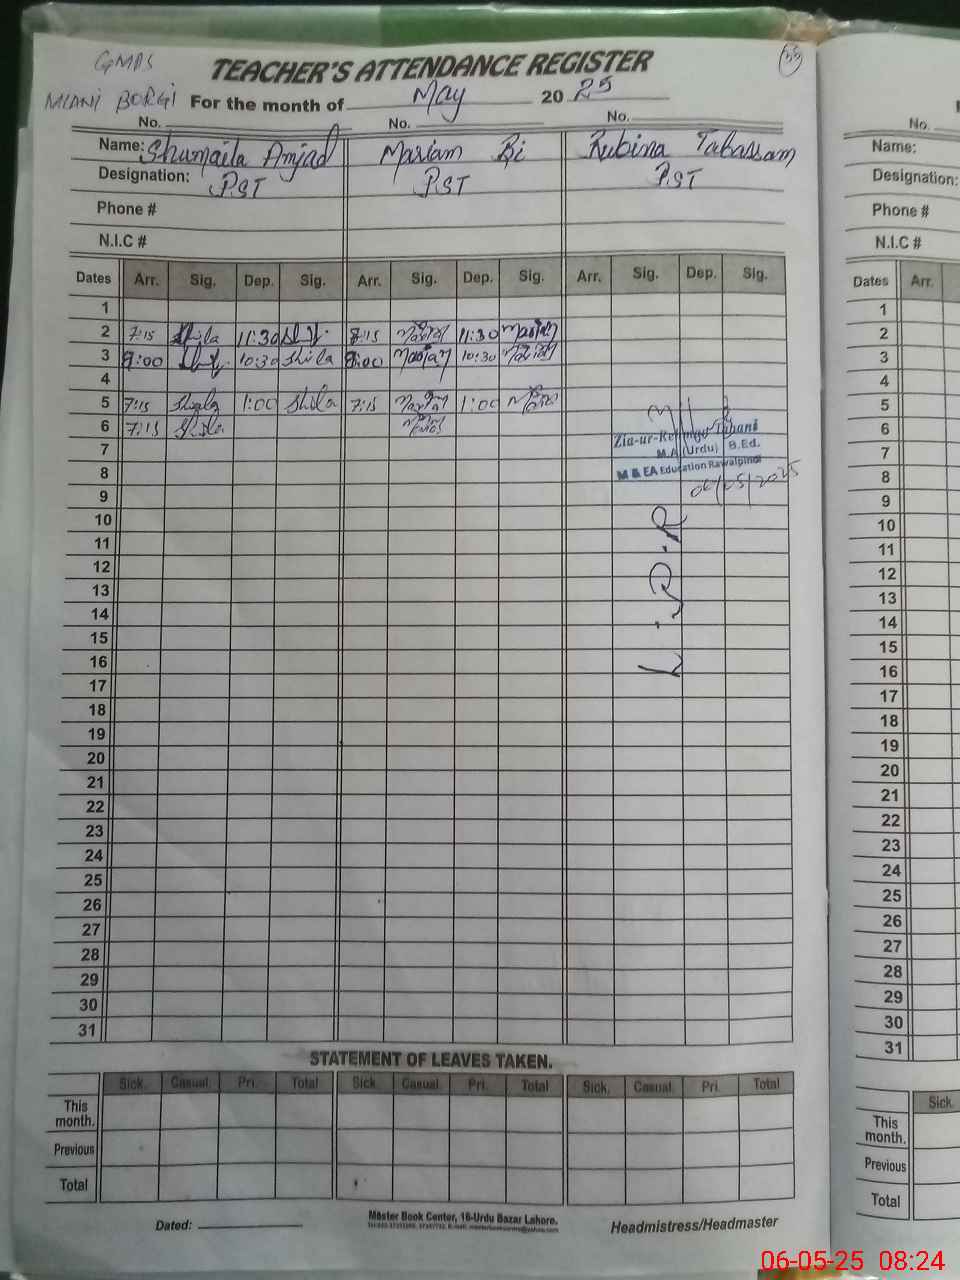 GMPS
MIANI BORGI
TEACHER'S ATTENDANCE REGISTER
35
For the month of May 20 25
No. No. No.
Name: Shumaila Amjad Mariam Bi Rubina Tabassam
Designation: P.ST P.ST P.ST
Phone #
N.I.C #
Dates Arr. Sig. Dep. Sig. Arr. Sig. Dep. Sig. Arr. Sig. Dep. Sig.
1
2 7:15 Shila 11:30 7:15 Mariam 11:30 Mariam
3 8:00 10:30 Shila 8:00 Mariam 10:30 Mariam
4
5 7:15 Shila 1:00 Shila 7:15 Mariam 1:00 Mariam
6 7:15 Shila Mariam
Zia-ur-Rehman
M.A (Urdu) B.Ed.
M & EA Education Rawalpindi
06/05/2025
7
8
9
10
11
12
13
14
15
16
17
18
19
20
21
22
23
24
25
26
27
28
29
30
31
STATEMENT OF LEAVES TAKEN.
Sick. Casual. Pri. Total Sick. Casual. Pri. Total Sick. Casual. Pri. Total
This month.
Previous
Total
Dated:
Master Book Center, 16-Urdu Bazar Lahore.
Headmistress/Headmaster
No.
Name:
Designation:
Phone #
N.I.C #
Dates Arr.
1
2
3
4
5
6
7
8
9
10
11
12
13
14
15
16
17
18
19
20
21
22
23
24
25
26
27
28
29
30
31
Sick.
This month.
Previous
Total
06-05-25 08:24